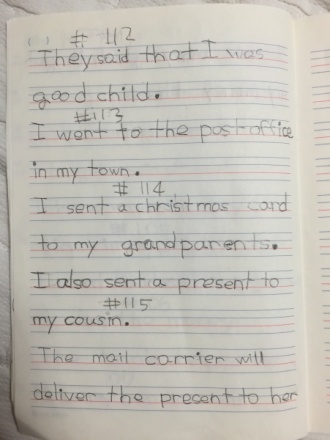 # 112
They said that I was
good child.
#113
I went to the post office
in my town.
# 114
I sent a christmas card
to my grandparents.
I also sent a present to
#115
my cousin.
The mail carrier will
deliver the present to her